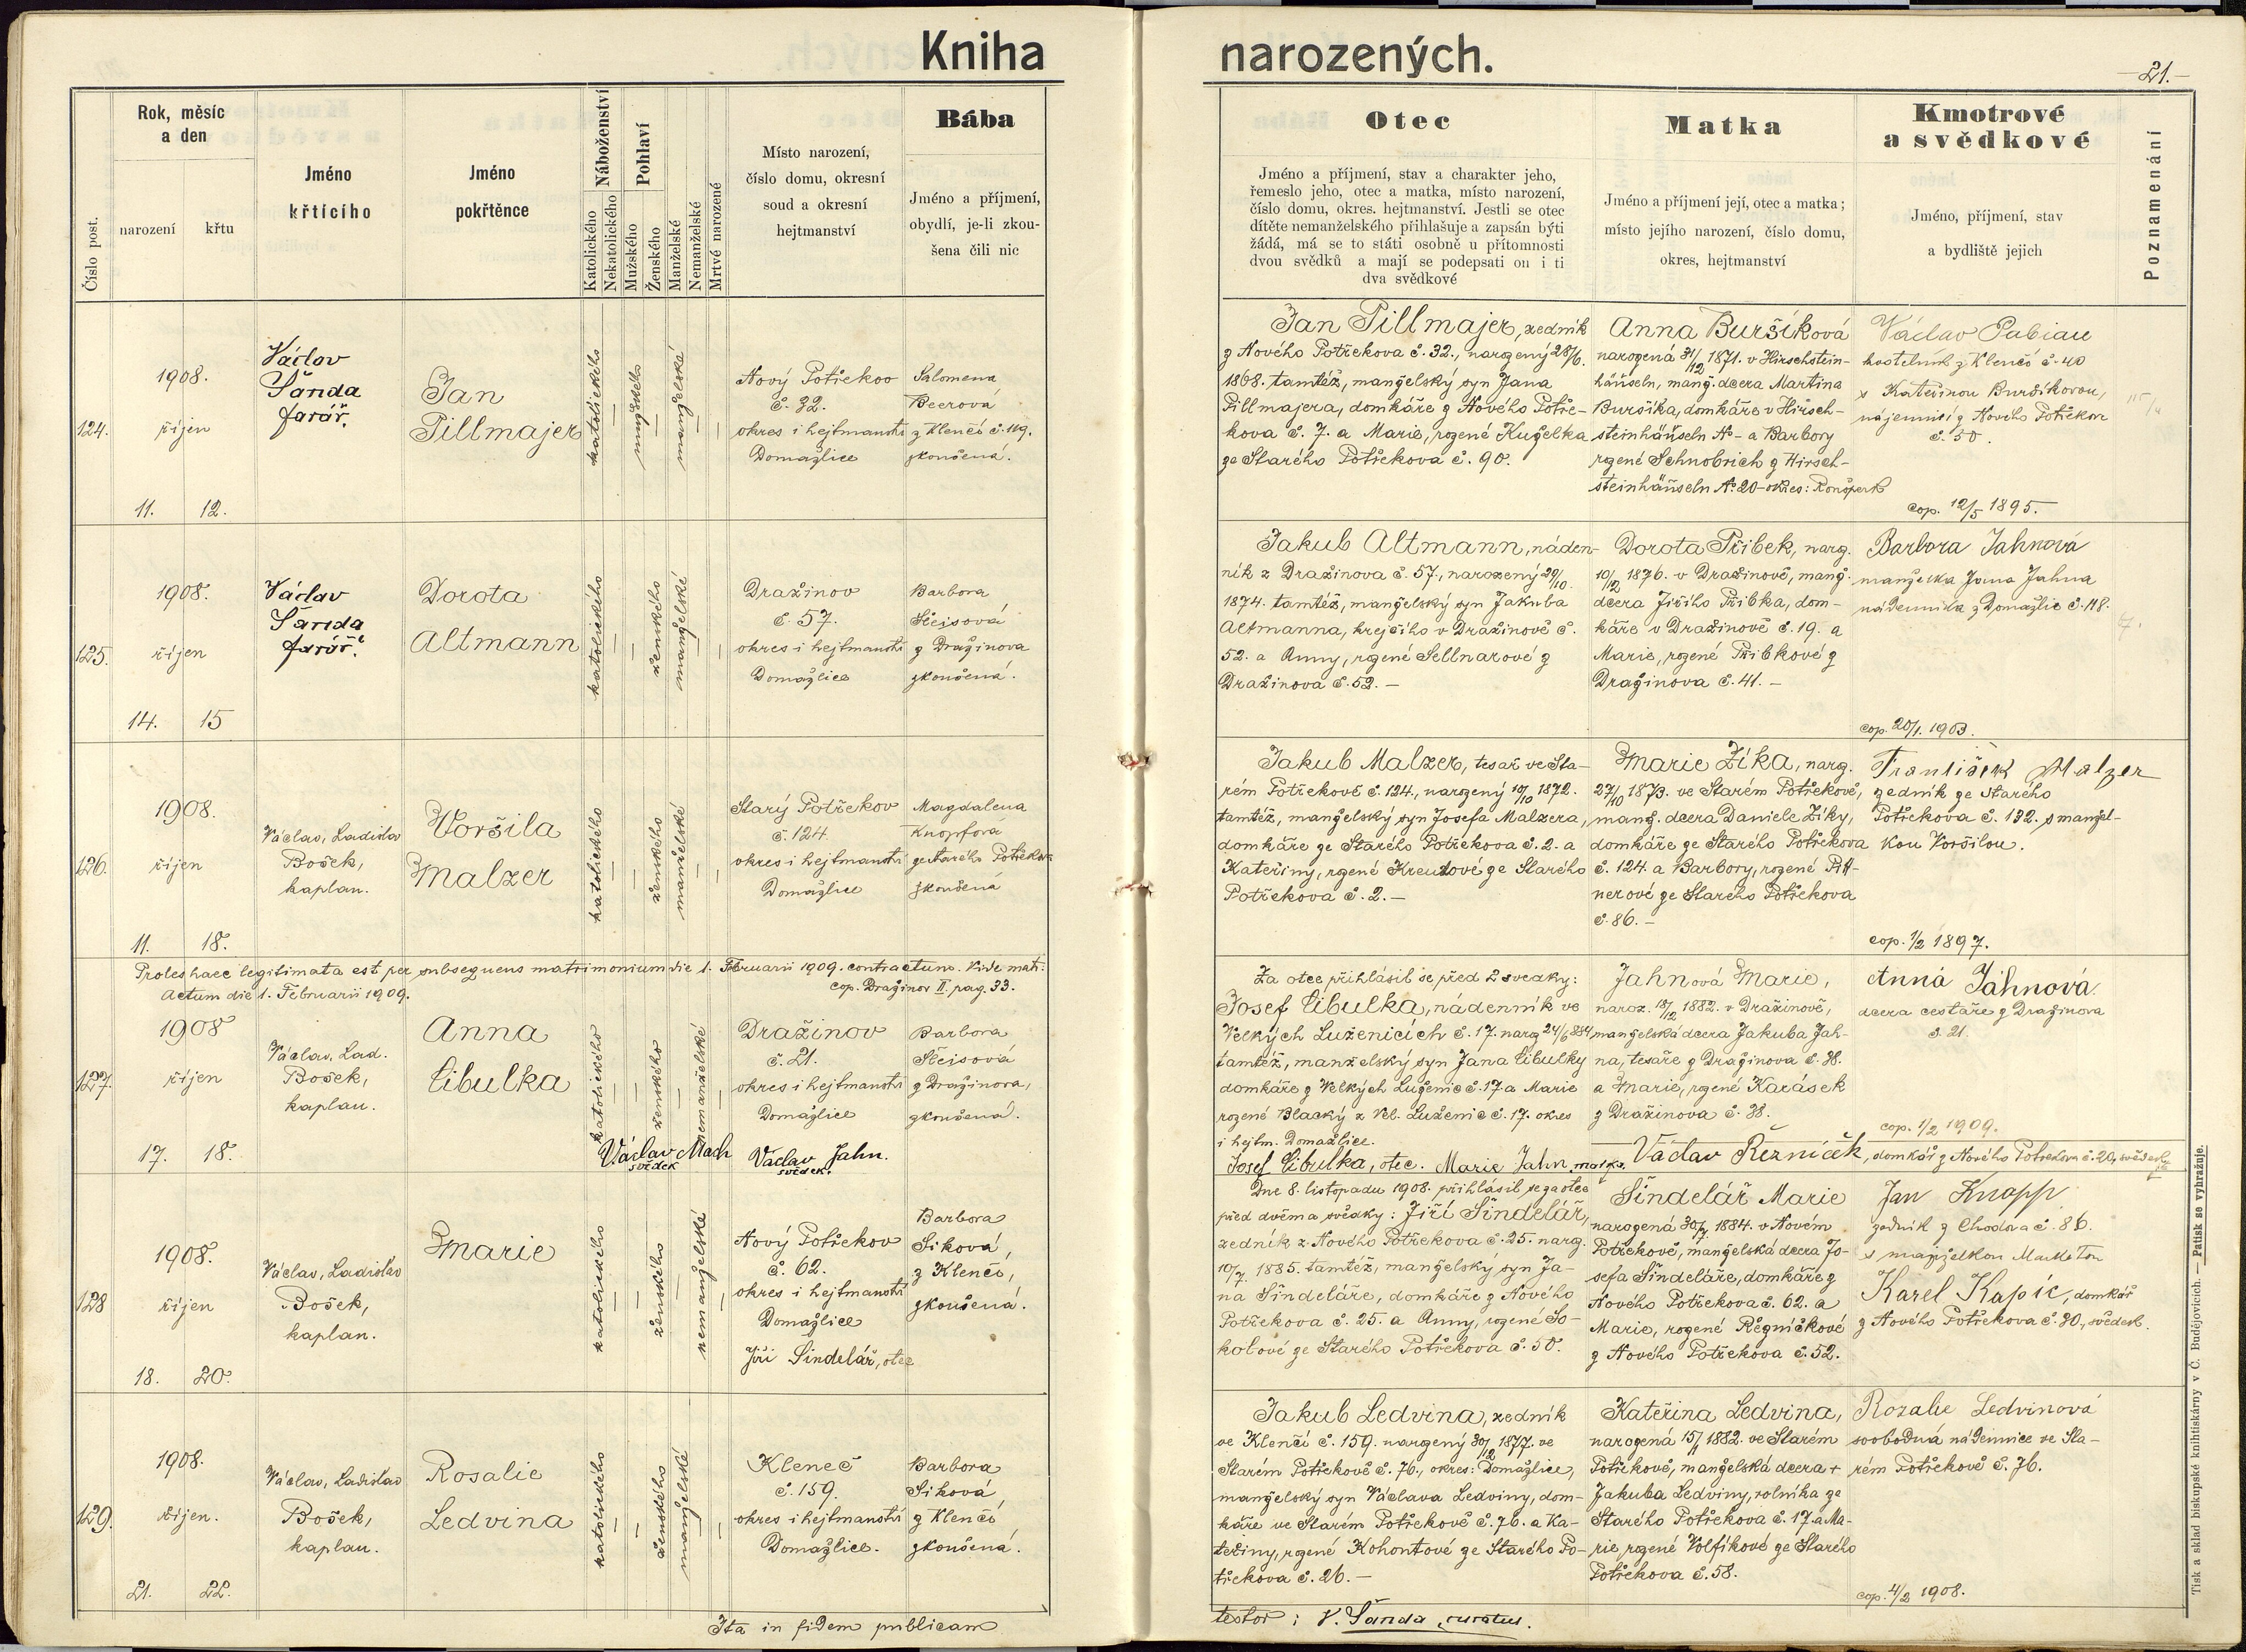 Kniha
narozených.
21.
Číslo post.
Rok, měsíc
a den
narození
křtu
Jméno
křtícího
Jméno
pokřtěnce
Náboženství
Katolického
Nekatolického
Pohlaví
Mužského
Ženského
Manželské
Nemanželské
Mrtvé narozené
Místo narození,
číslo domu, okresní
soud a okresní
hejtmanství
Bába
Jméno a příjmení,
obydlí, je-li zkou-
šena čili nic
Otec
Jméno a příjmení, stav a charakter jeho,
řemeslo jeho, otec a matka, místo narození,
číslo domu, okres. hejtmanství. Jestli se otec
dítěte nemanželského přihlašuje a zapsán býti
žádá, má se to státi osobně u přítomnosti
dvou svědků a mají se podepsati on i ti
dva svědkové
Matka
Jméno a příjmení její, otec a matka;
místo jejího narození, číslo domu,
okres, hejtmanství
Kmotrové
a svědkové
Jméno, příjmení, stav
a bydliště jejich
Poznamenání
124.
1908.
říjen
11.
12.
Václav
Šanda
farář.
Jan
Pillmajer
katolického
mužského
manželské
Nový Potřekov
č. 32.
okres i hejtmanství
Domažlice
Salomena
Beerová
z Klenčí č. 119.
zkoušená.
Jan Pillmajer, zedník
z Nového Potřekova č. 32., narozený 28/6.
1868. tamtéž, manželský syn Jana
Pillmajera, domkáře z Nového Potře-
kova č. 7. a Marie, rozené Kuželka
ze Starého Potřekova č. 90.
Anna Buršíková
narozená 31/12 1871. v Hirschstein-
häuseln, manž. dcera Martina
Buršíka, domkáře v Hirsch-
steinhäuseln No - a Barbory
rozené Schnobrich z Hirsch-
steinhäuseln No 20 - okres: Ronšperk
Václav
z Klenčí č. 40
s Kateřinou Buršíkovou,
nájemnicí z Nového Potřekova
č. 50.
cop. 12/5 1895.
125.
1908.
říjen
14.
15
Václav
Šanda
farář.
Dorota
Altmann
katolického
ženského
manželské
Dražinov
č. 57.
okres i hejtmanství
Domažlice
Barbora
Šteisová
z Dražinova
zkoušená.
Jakub Altmann, náden-
ník z Dražinova č. 57., narozený 29/10.
1874. tamtéž, manželský syn Jakuba
Altmanna, krejčího v Dražinově č.
52. a Anny, rozené Sellnarové z
Dražinova č. 52. -
Dorota Přibek, narz.
10/12 1876. v Dražinově, manž.
dcera Jiřího Přibka, dom-
káře v Dražinově č. 19. a
Marie, rozené Přibkové z
Dražinova č. 41. -
Barbora Jahnová
manželka Jana Jahna
nádeníka z Domažlic č. 118.
cop. 20/1. 1903.
126.
1908.
říjen
11.
18.
Václav, Ladislav
Bošek,
kaplan.
Voršila
Malzer
katolického
ženského
manželské
Starý Potřekov
č. 124.
okres i hejtmanství
Domažlice
Magdalena
Knopfová
ze Starého Potřekova
zkoušená
Jakub Malzer, tesař ve Sta-
rém Potřekově č. 124., narozený 10/10 1872.
tamtéž, manželský syn Josefa Malzera,
domkáře ze Starého Potřekova č. 2. a
Kateřiny, rozené Kreutové ze Starého
Potřekova č. 2. -
Marie Žíka, narz.
27/10 1873. ve Starém Potřekově,
manž. dcera Daniele Žíky,
domkáře ze Starého Potřekova
č. 124. a Barbory, rozené Pitt-
nerové ze Starého Potřekova
č. 86. -
František Malzer
zedník ze starého
Potřekova č. 132. s manžel-
kou Voršilou.
cop. 1/2 1897.
Proles haec legitimata est per subsequens matrimonium die 1. Februarii 1909. contractum. Vide matr.
Actum die 1. Februarii 1909.
cop. Dražinov II. pag. 33.
127.
1908
říjen
17.
18.
Václav, Lad.
Bošek,
kaplan.
Anna
Cibulka
katolického
ženského
nemanželské
Dražinov
č. 21.
okres i hejtmanství
Domažlice
Barbora
Šteisová
z Dražinova,
zkoušená.
Václav Mach
svědek
Václav Jahn.
svědek.
Za otce přihlásil se před 2 svědky:
Josef Cibulka, nádenník ve
Velkých Luženicích č. 17. narz 24/6 884
tamtéž, manželský syn Jana Cibulky
domkáře z Velkých Luženic č. 17. a Marie
rozené Blacký z Vel. Luženic č. 17. okres
i hejtm. Domažlice.
Josef Cibulka, otec. Marie Jahn, matka.
Jahnová Marie,
naroz. 18/12 1882. v Dražinově,
manželská dcera Jakuba Jah-
na, tesaře z Dražinova č. 38.
a Marie, rozené Karásek
z Dražinova č. 38.
Anna Jahnová.
dcera cestáře z Dražinova
č. 21.
cop. 1/2 1909.
Václav Řezníček, domkář z Nového Potřekova č. 20, svědek
128
1908.
říjen
18.
20.
Václav, Ladislav
Bošek,
kaplan.
Marie
katolického
ženského
nemanželské
Nový Potřekov
č. 62.
okres i hejtmanství
Domažlice
Jiří Šindelář, otec
Barbora
Siková,
z Klenčí,
zkoušená.
Dne 8. listopadu 1908. přihlásil se za otce
před dvěma svědky: Jiří Šindelář,
zedník z Nového Potřekova č. 25. narz.
10/7. 1885. tamtéž, manželský syn Ja-
na Šindeláře, domkáře z Nového
Potřekova č. 25. a Anny, rozené So-
kolové ze Starého Potřekova č. 50.
Šindelář Marie
narozená 30/7 1884. v Novém
Potřekově, manželská dcera Jo-
sefa Šindeláře, domkáře z
Nového Potřekova č. 62. a
Marie, rozené Řezníčkové
z Nového Potřekova č. 52.
Jan Knapp
zedník z Chodova č. 86.
s manželkou Marketou
Karel Kapic, domkář
z Nového Potřekova č. 30., svědek.
129.
1908.
říjen.
21.
22.
Václav, Ladislav
Bošek,
kaplan.
Rosalie
Ledvina
katolického
ženského
manželské
Kleneč
č. 159.
okres i hejtmanství
Domažlice.
Barbora
Siková
z Klenčí
zkoušená.
Jakub Ledvina, zedník
ve Klenčí č. 159. narozený 30/12 1877. ve
Starém Potřekově č. 76., okres: Domažlice,
manželský syn Václava Ledviny, dom-
káře ve Starém Potřekově č. 76. a Ka-
teřiny, rozené Kohoutové ze Starého Po-
třekova č. 26. -
Kateřina Ledvina,
narozená 15/1 1882. ve Starém
Potřekově, manželská dcera +
Jakuba Ledviny, rolníka ze
Starého Potřekova č. 17. a Ma-
rie, rozené Volfíkové ze Starého
Potřekova č. 58.
Rozalie Ledvinová
svobodná nádennice ve Sta-
rém Potřekově č. 76.
cop. 4/2 1908.
Ita in fidem publicam
testor: V. Šanda, curatus.
Tisk a sklad biskupské knihtiskárny v Č. Budějovicích. — Patisk se vyhražuje.